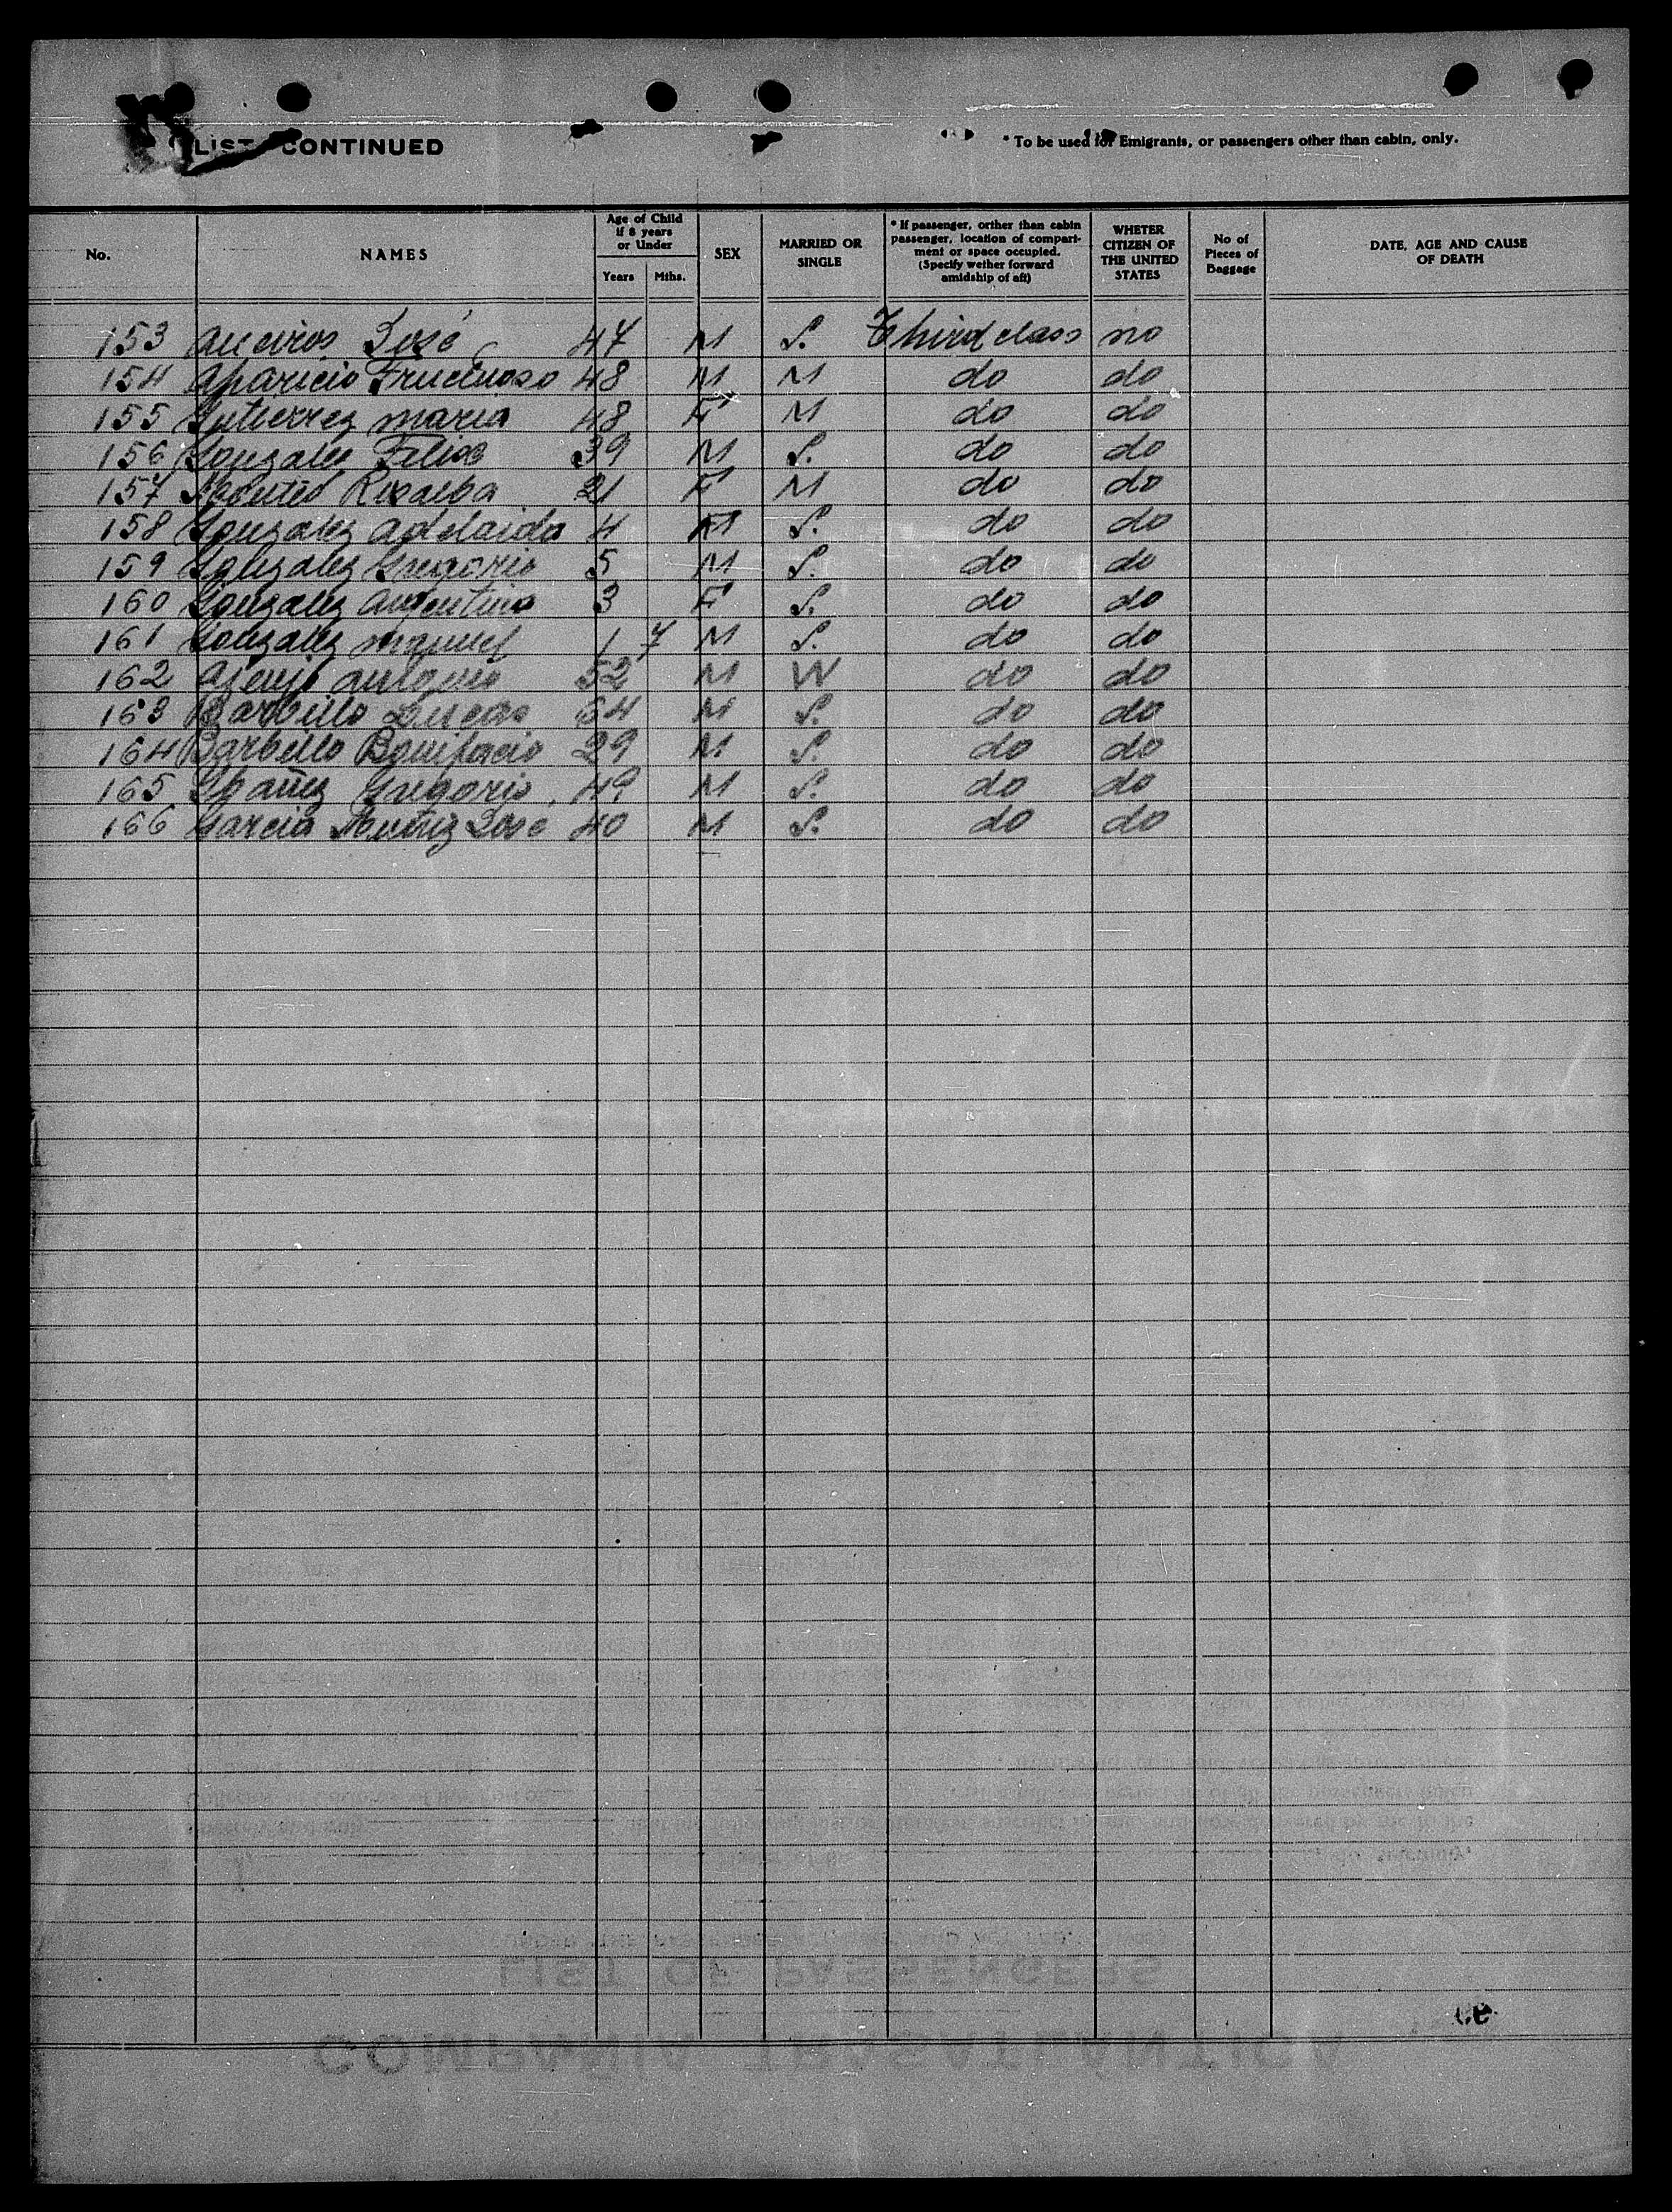 LIST CONTINUED
* To be used for Emigrants, or passengers other than cabin, only.
No.
NAMES
Age of Child if 8 years or Under
Years
Mths.
SEX
MARRIED OR SINGLE
* If passenger, orther than cabin passenger, location of compartment or space occupied. (Specify wether forward amidship of aft)
WHETER CITIZEN OF THE UNITED STATES
No of Pieces of Baggage
DATE, AGE AND CAUSE OF DEATH
153 Aneiros José 47 M S. Third class no
154 Aparicio Fructuoso 48 M M do do
155 Gutierrez Maria 48 F M do do
156 Gonzalez Felix 39 M S. do do
157 21 F M do do
158 Gonzalez Adelaida 4 F S. do do
159 Gonzalez Gregorio 5 M S. do do
160 Gonzalez Argentina 3 F S. do do
161 Gonzalez Miguel 1 7 M S. do do
162 Asenjo Antonio 52 M W do do
163 Barbillo Lucas 64 M S. do do
164 Barbillo Bonifacio 29 M S. do do
165 Ibañez Gregorio 49 M S. do do
166 Garcia Muñiz José 40 M S. do do
LIST OF PASSENGERS
COMPAÑIA TRASATLANTICA